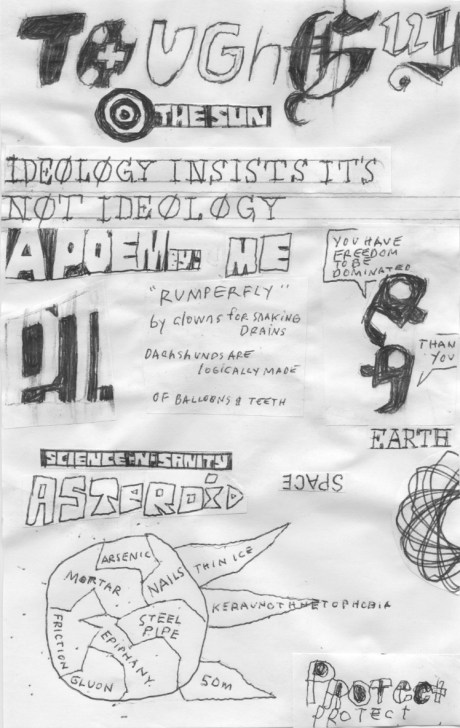 TOUGh Guy
THE SUN
IDEØLØGY INSISTS IT'S
NØT IDEØLØGY
A POEM BY: ME
YOU HAVE
FREEDOM
TO BE
DOMINATED
"RUMPERFLY"
by clowns FOR SNAKING
DRAINS
DACHSHUNDS ARE
LOGICALLY MADE
OF BALLOONS & TEETH
OIL
THAN
YOU
EARTH
SCIENCE-N-SANITY
ASTEROID
SPACE
ARSENIC
MORTAR
NAILS
THIN ICE
KERAUNOTHNETOPHOBIA
STEEL
PIPE
FRICTION
EPIPHANY
GLUON
50M
PROTECT
PROTECT